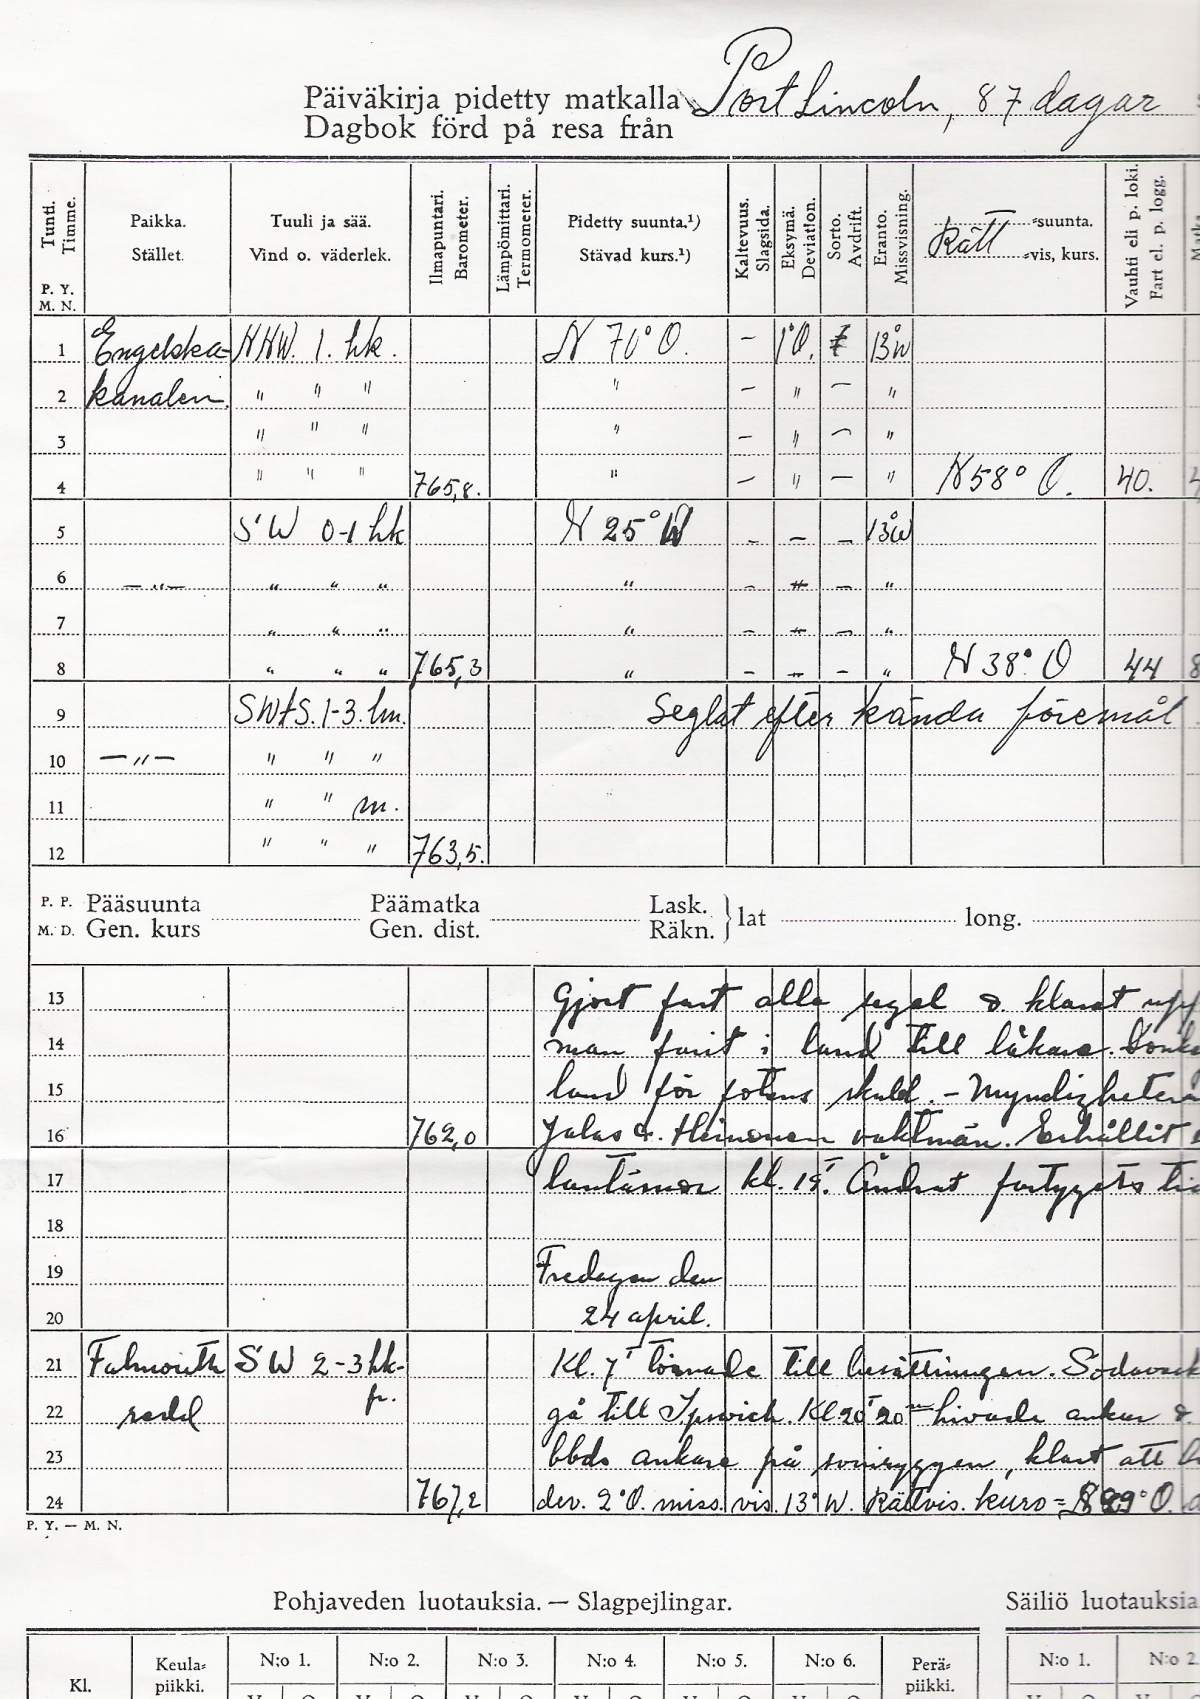 Päiväkirja pidetty matkalla Port Lincoln, 87 dagar
Dagbok förd på resa från
Tunti. Timme. Paikka. Stället. Tuuli ja sää. Vind o. väderlek. Ilmapuntari. Barometer. Lämpömittari. Termometer. Pidetty suunta.¹) Stävad kurs.¹) Kaltevuus. Slagsida. Eksymä. Deviation. Sorto. Avdrift. Eranto. Missvisning. Rätt =suunta. =vis, kurs. Vauhti eli p. loki. Fart el. p. logg.
P. Y.
M. N.
1 Engelska- NNW. 1. hk. N 70° O. — 1°O. 13°W
2 kanalen. " " " " — " — "
3 " " " " — " — "
4 " " " 765,8. " — " — " N 58° O. 40.
5 SW 0-1 hk N 25° W — — — 13°W
6 —"— " " " " — — "
7 " " " " — — "
8 " " " 765,3 " — — " N 38° O 44 8
9 SWtS. 1-3. hm. Seglat efter kända föremål
10 —"— " " "
11 " " m.
12 " " " 763,5.
P. P. Pääsuunta Päämatka Lask. lat long.
M. D. Gen. kurs Gen. dist. Räkn.
13 Gjort fast alla segel & klarat upp
14 man farit i land till läkare.
15 land för fotens skuld. — Myndigheterna
16 762,0 Jalas & Heinonen vaktmän. Erhållit
17 lantärnor kl. 19. Ändrat fartygets
18
19 Fredagen den
20 24 april.
21 Falmouth SW 2-3 hk- Kl. 7 törnade till besättningen.
22 redd fr. gå till Ipswich. Kl 20 20 hivade ankar &
23 bbds ankare på svinryggen, klart att
24 767,2 dev. 2°O. miss. vis. 13°W. Rättvis. kurs = 89° O.
P. Y. — M. N.
Pohjaveden luotauksia. — Slagpejlingar. Säiliö luotauksia
Kl. Keula=piikki. N:o 1. N:o 2. N:o 3. N:o 4. N:o 5. N:o 6. Perä=piikki. N:o 1. N:o 2.